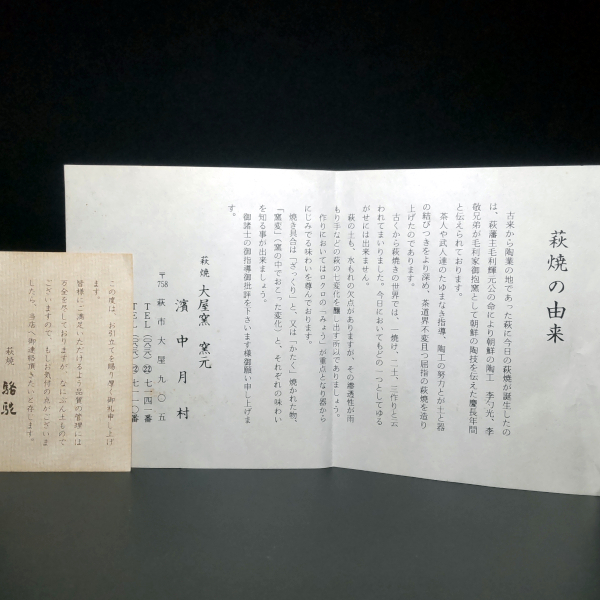 萩焼の由来
古来から陶業の地であった萩に今日の萩焼が誕生したの
は、萩藩主毛利輝元公の命により朝鮮の陶工 李勺光、李
敬兄弟が毛利家御抱窯として朝鮮の陶技を伝えた慶長年間
と伝えられております。
茶人や武人達のたゆまなき指導、陶工の努力とが土と器
の結びつきをより深め、茶道界不変且つ屈指の萩焼を造り
上げたのであります。
古くから萩焼きの世界では、一焼け、二土、三作りと云
われてまいりました。今日においてもどの一つとしてゆる
がせには出来ません。
萩の土も、水もれの欠点がありますが、その滲透性が雨
もり手などの萩の七変化を醸し出す所以でありましょう。
作りにおいてはロクロの「みしょう」が重点となり器から
にじみでる味わいを尊んでおります。
焼き具合は「ざっくり」と、又は「かたく」焼かれた物、
「窯変」(窯の中でおこった変化)と、それぞれの味わい
を知る事が出来ましょう。
御諸士の御指導御批評を下さいます様御願い申し上げま
す。
萩焼 大屋窯 窯元
濱中月村
〒758 萩市大屋九〇五
この度は、お引立てを賜り厚く御礼申し上げ
ます。
皆様にご満足いただけるよう品質の管理には
万全を尽しておりますが、なにぶん土もので
ございますので、もしお気付の点がございま
したら、当店へ御連絡頂きたいと存じます。
萩焼